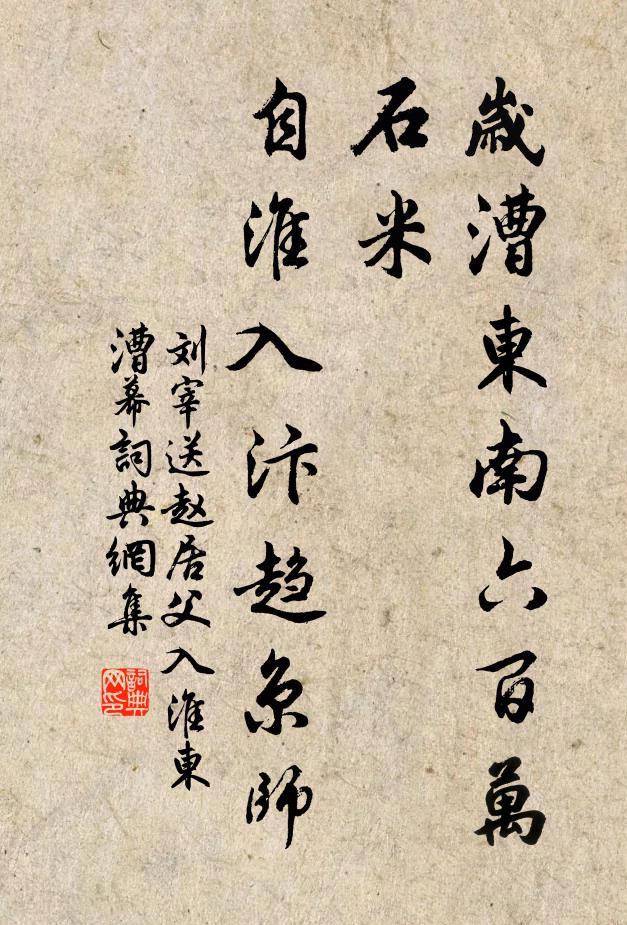 歲漕東南六百萬
石米
自淮入汴趨京師
刘宰送赵居父入淮東
漕幕詞典網集
詞典网印